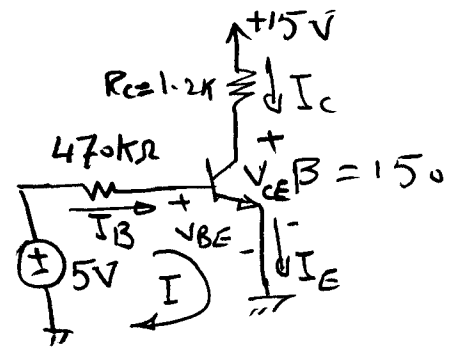 +15V
Rc=1.2K
Ic
+
470KΩ
VCE β = 150
IB
+
VBE
-
-
IE
±
5V
I